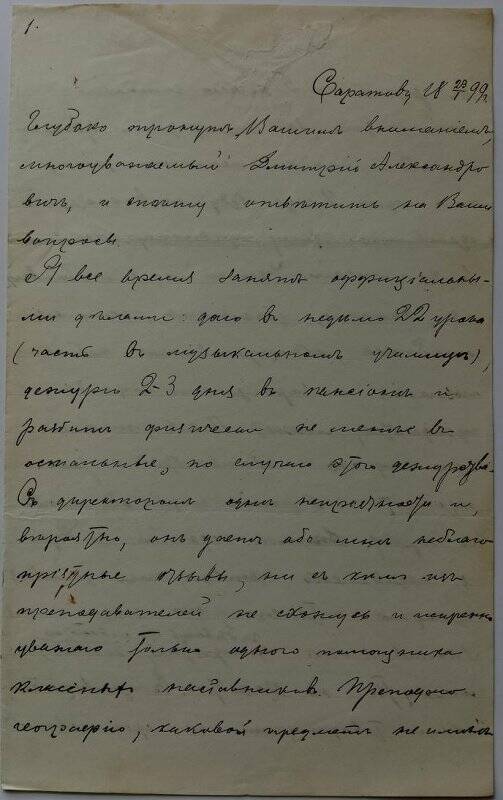 1.
Саратовъ 18 23/I 99 г.
Глубоко тронутъ Вашимъ вниманіемъ,
многоуважаемый Дмитрій Александро
вичъ, и спѣшу отвѣтить на Ваши
вопросы.
Я все время занятъ оффиціальны-
ми дѣлами: даю въ недѣлю 22 урока
(часть въ музыкальномъ училищѣ),
дежурю 2-3 дня въ пансіонѣ и
разбитъ физически не менѣе въ
остальные, по случаю этого дежурства.
Съ директоромъ однѣ непріятности и,
вѣроятно, онъ даетъ обо мнѣ неблаго
пріятные отзывы; ни съ кѣмъ изъ
преподавателей не сблизусь и искренно
уважаю только одного помощника
классныхъ наставниковъ. Преподаю
географію, каковой предметъ не